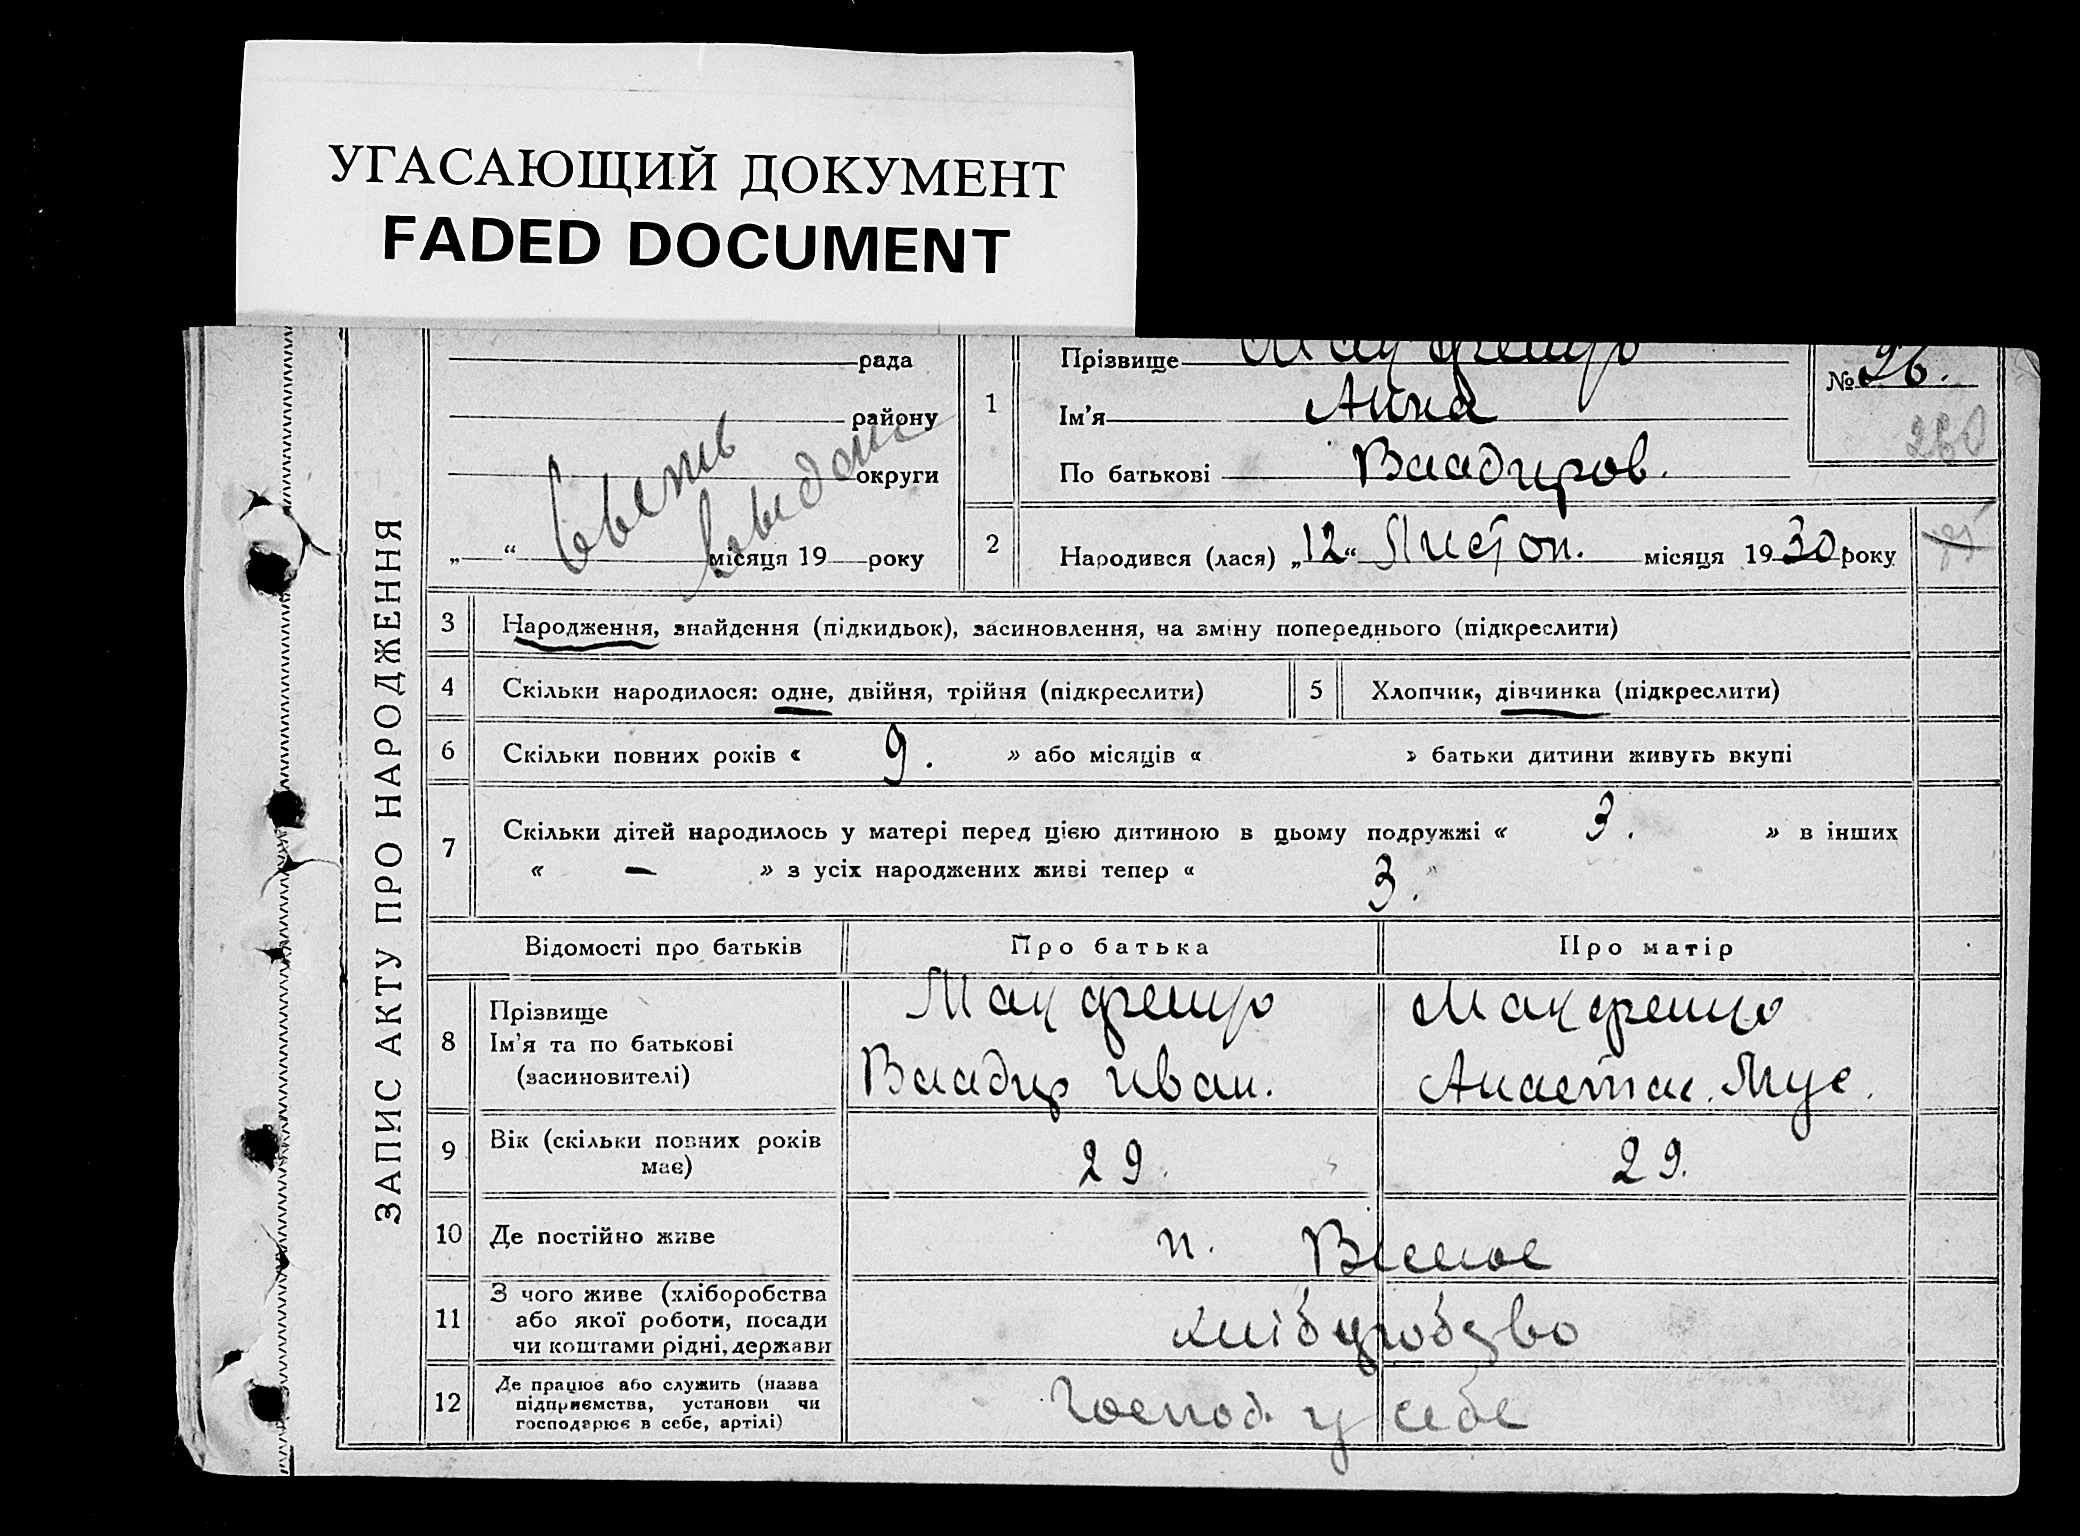 УГАСАЮЩИЙ ДОКУМЕНТ
FADED DOCUMENT
ЗАПИС АКТУ ПРО НАРОДЖЕННЯ
рада
району
округи
„ “ місяця 19 року
1
Прізвище
Ім’я Анна
По батькові Владиров.
№ 26.
260
2
Народився (лася) „12“ Листоп. місяця 1930 року
3 Народження, знайдення (підкидьок), засиновлення, на зміну попереднього (підкреслити)
4 Скільки народилося: одне, двійня, трійня (підкреслити)
5 Хлопчик, дівчинка (підкреслити)
6 Скільки повних років « 9. » або місяців « » батьки дитини живуть вкупі
7 Скільки дітей народилось у матері перед цією дитиною в цьому подружжі « 3. » в інших
« – » з усіх народжених живі тепер « 3. »
Відомості про батьків Про батька Про матір
8 Прізвище
Ім’я та по батькові
(засиновителі)
Иван.
Анастас.
9 Вік (скільки повних років
має)
29. 29.
10 Де постійно живе
п.
11 З чого живе (хліборобства
або якої роботи, посади
чи коштами рідні, держави
12 Де працює або служить (назва
підприємства, установи чи
господарює в себе, артілі)
Господ. у себе